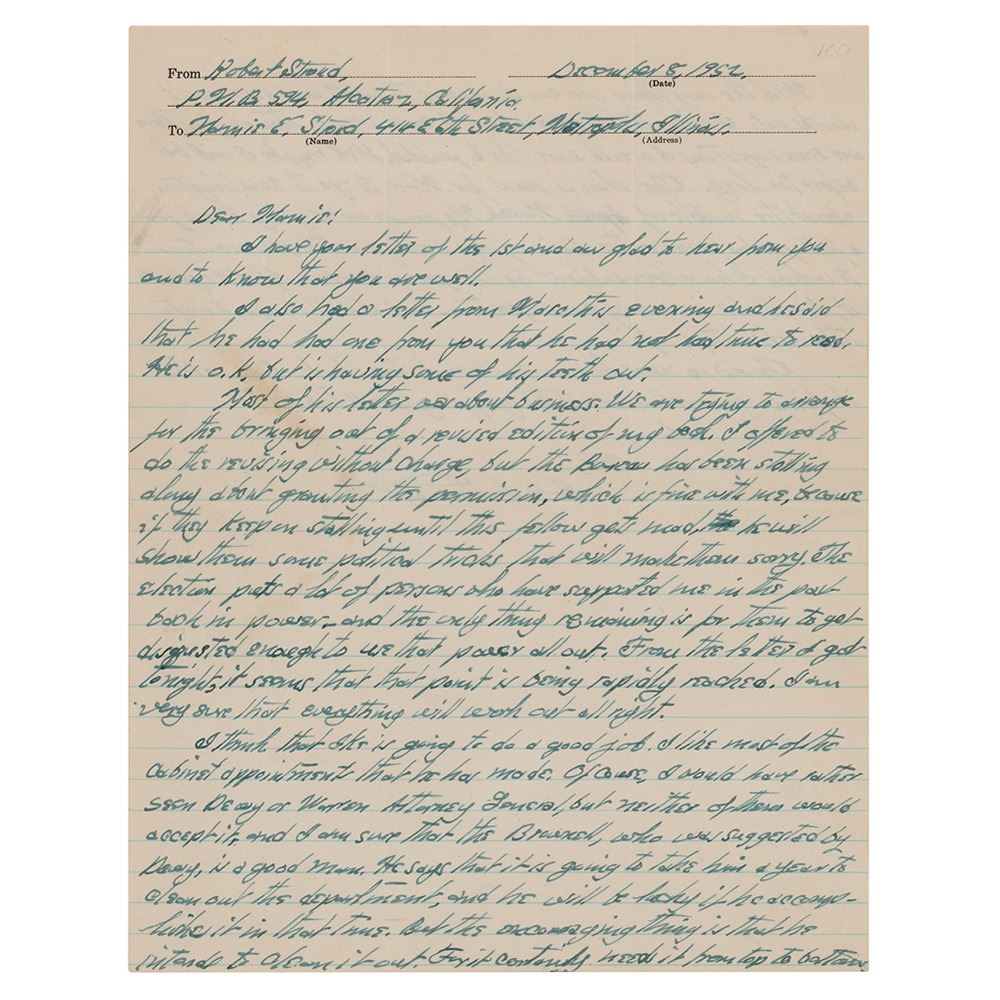 100
From Robert Stroud, December 8, 1952.
(Date)
P.M.B. 594, Alcatraz, California.
To Mamie E. Stroud, 414 E 6th Street, Metropolis, Illinois.
(Name) (Address)
Dear Mamie:
I have your letter of the 1st and am glad to hear from you
and to know that you are well.
I also had a letter from Marc this evening and he said
that he had had one from you that he had not had time to read.
He is o.k. but is having some of his teeth out.
Most of his letter was about business. We are trying to arrange
for the bringing out of a revised edition of my book. I offered to
do the revising without charge, but the Bureau has been stalling
along about granting the permission, which is fine with me, because
if they keep on stalling until this fellow gets mad, he will
show them some political tricks that will make them sorry. The
election puts a lot of persons who have supported me in the past
back in power and the only thing remaining is for them to get
disgusted enough to use that power all out. From the letter I got
tonight, it seems that that point is being rapidly reached. I am
very sure that everything will work out all right.
I think that Ike is going to do a good job. I like most of the
cabinet appointment that he has made. Of couse, I would have rather
seen Dewey or Warren Attorney General, but neither of them would
accept it, and I am sure that the Brownell, who was suggested by
Dewey, is a good man. He says that it is going to take him a year to
clean out the department, and he will be lucky if he accomp-
lishes it in that time. But the encouraging thing is that he
intends to clean it out. For it certainly needs it from top to bottom.